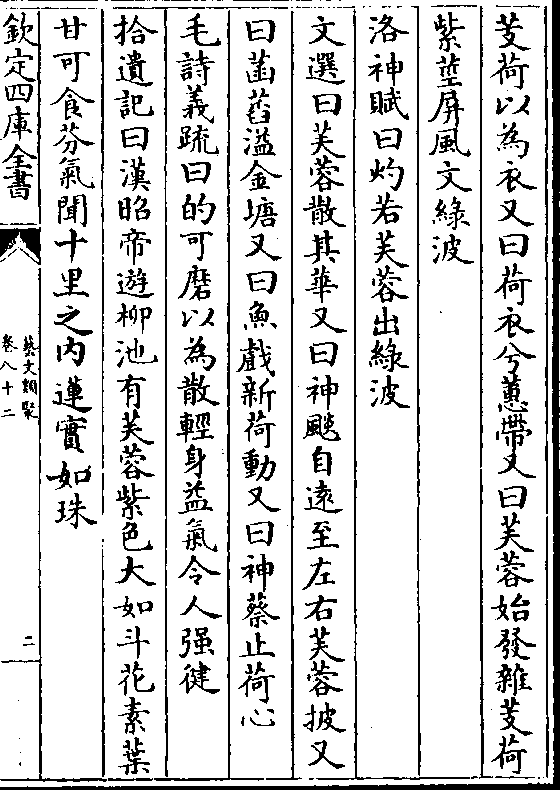 芰荷以為衣又曰荷衣兮蕙帶又曰芙蓉始發雜芰荷
紫莖屏風文綠波
洛神賦曰灼若芙蓉出綠波
文選曰芙蓉散其華又曰神飈自遠至左右芙蓉披又
曰菡萏溢金塘又曰魚戲新荷動又曰神蔡止荷心
毛詩義疏曰的可磨以為散輕身益氣令人强健
拾遺記曰漢昭帝遊柳池有芙蓉紫色大如斗花素葉
甘可食芬氣聞十里之內蓮實如珠
欽定四庫全書
藝文類聚
卷八十二
二